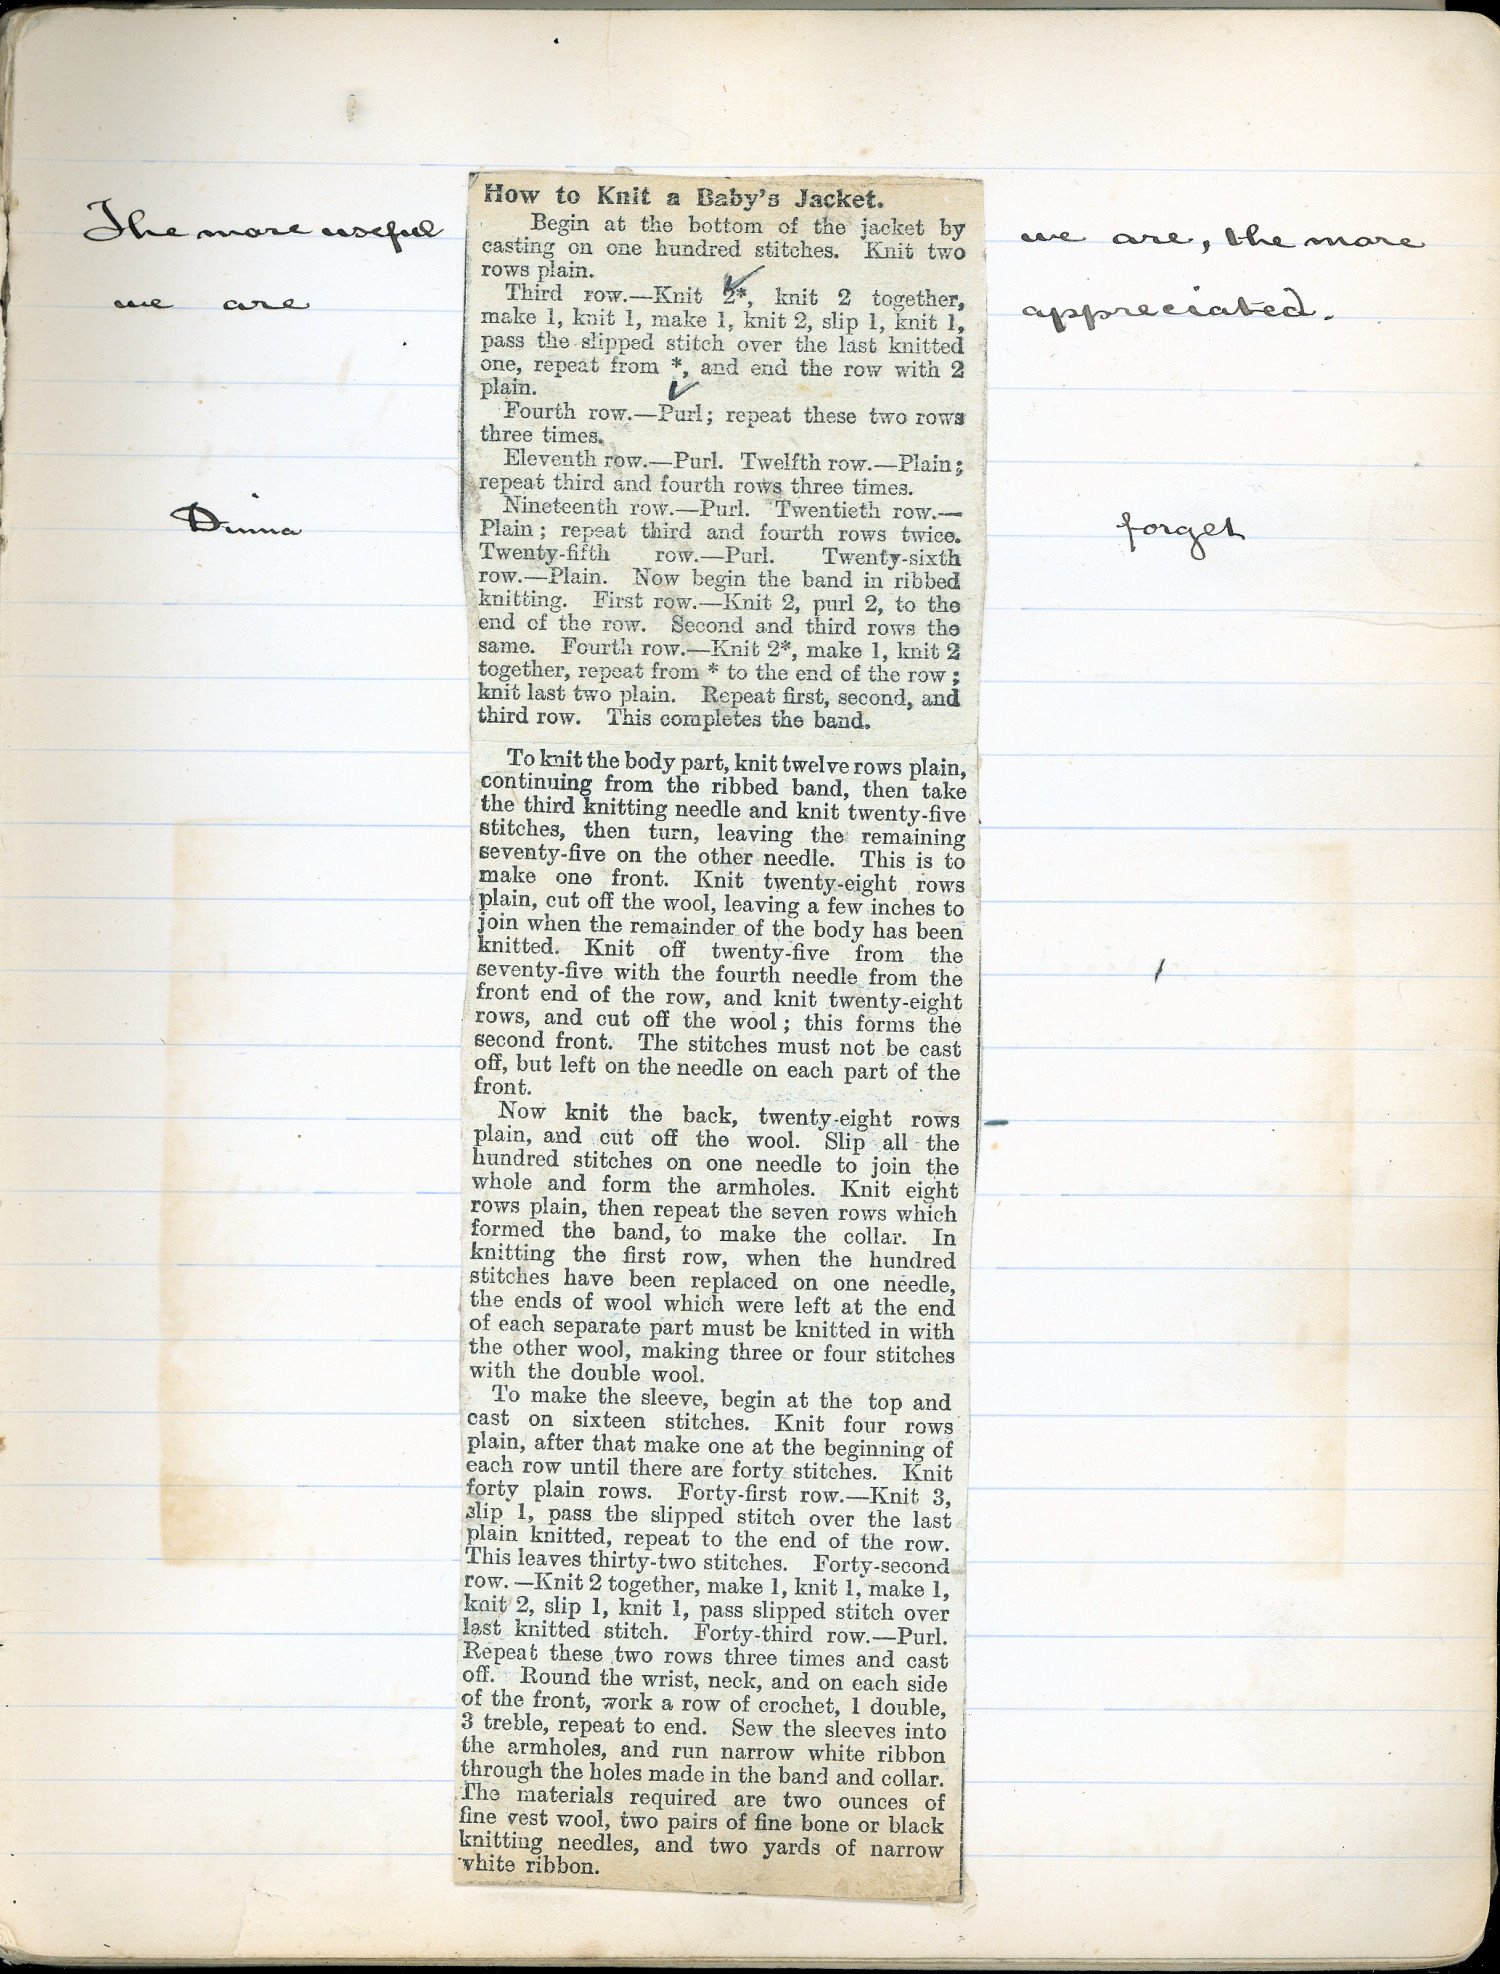 The more useful
we are
Dinna
How to Knit a Baby's Jacket.
Begin at the bottom of the jacket by
casting on one hundred stitches. Knit two
rows plain.
Third row.—Knit 2*, knit 2 together,
make 1, knit 1, make 1, knit 2, slip 1, knit 1,
pass the slipped stitch over the last knitted
one, repeat from *, and end the row with 2
plain.
Fourth row.—Purl; repeat these two rows
three times.
Eleventh row.—Purl. Twelfth row.—Plain;
repeat third and fourth rows three times.
Nineteenth row.—Purl. Twentieth row.—
Plain; repeat third and fourth rows twice.
Twenty-fifth row.—Purl. Twenty-sixth
row.—Plain. Now begin the band in ribbed
knitting. First row.—Knit 2, purl 2, to the
end of the row. Second and third rows the
same. Fourth row.—Knit 2*, make 1, knit 2
together, repeat from * to the end of the row;
knit last two plain. Repeat first, second, and
third row. This completes the band.
To knit the body part, knit twelve rows plain,
continuing from the ribbed band, then take
the third knitting needle and knit twenty-five
stitches, then turn, leaving the remaining
seventy-five on the other needle. This is to
make one front. Knit twenty-eight rows
plain, cut off the wool, leaving a few inches to
join when the remainder of the body has been
knitted. Knit off twenty-five from the
seventy-five with the fourth needle from the
front end of the row, and knit twenty-eight
rows, and cut off the wool; this forms the
second front. The stitches must not be cast
off, but left on the needle on each part of the
front.
Now knit the back, twenty-eight rows
plain, and cut off the wool. Slip all the
hundred stitches on one needle to join the
whole and form the armholes. Knit eight
rows plain, then repeat the seven rows which
formed the band, to make the collar. In
knitting the first row, when the hundred
stitches have been replaced on one needle,
the ends of wool which were left at the end
of each separate part must be knitted in with
the other wool, making three or four stitches
with the double wool.
To make the sleeve, begin at the top and
cast on sixteen stitches. Knit four rows
plain, after that make one at the beginning of
each row until there are forty stitches. Knit
forty plain rows. Forty-first row.—Knit 3,
slip 1, pass the slipped stitch over the last
plain knitted, repeat to the end of the row.
This leaves thirty-two stitches. Forty-second
row.—Knit 2 together, make 1, knit 1, make 1,
knit 2, slip 1, knit 1, pass slipped stitch over
last knitted stitch. Forty-third row.—Purl.
Repeat these two rows three times and cast
off. Round the wrist, neck, and on each side
of the front, work a row of crochet, 1 double,
3 treble, repeat to end. Sew the sleeves into
the armholes, and run narrow white ribbon
through the holes made in the band and collar.
The materials required are two ounces of
fine vest wool, two pairs of fine bone or black
knitting needles, and two yards of narrow
white ribbon.
we are, the more
appreciated.
forget